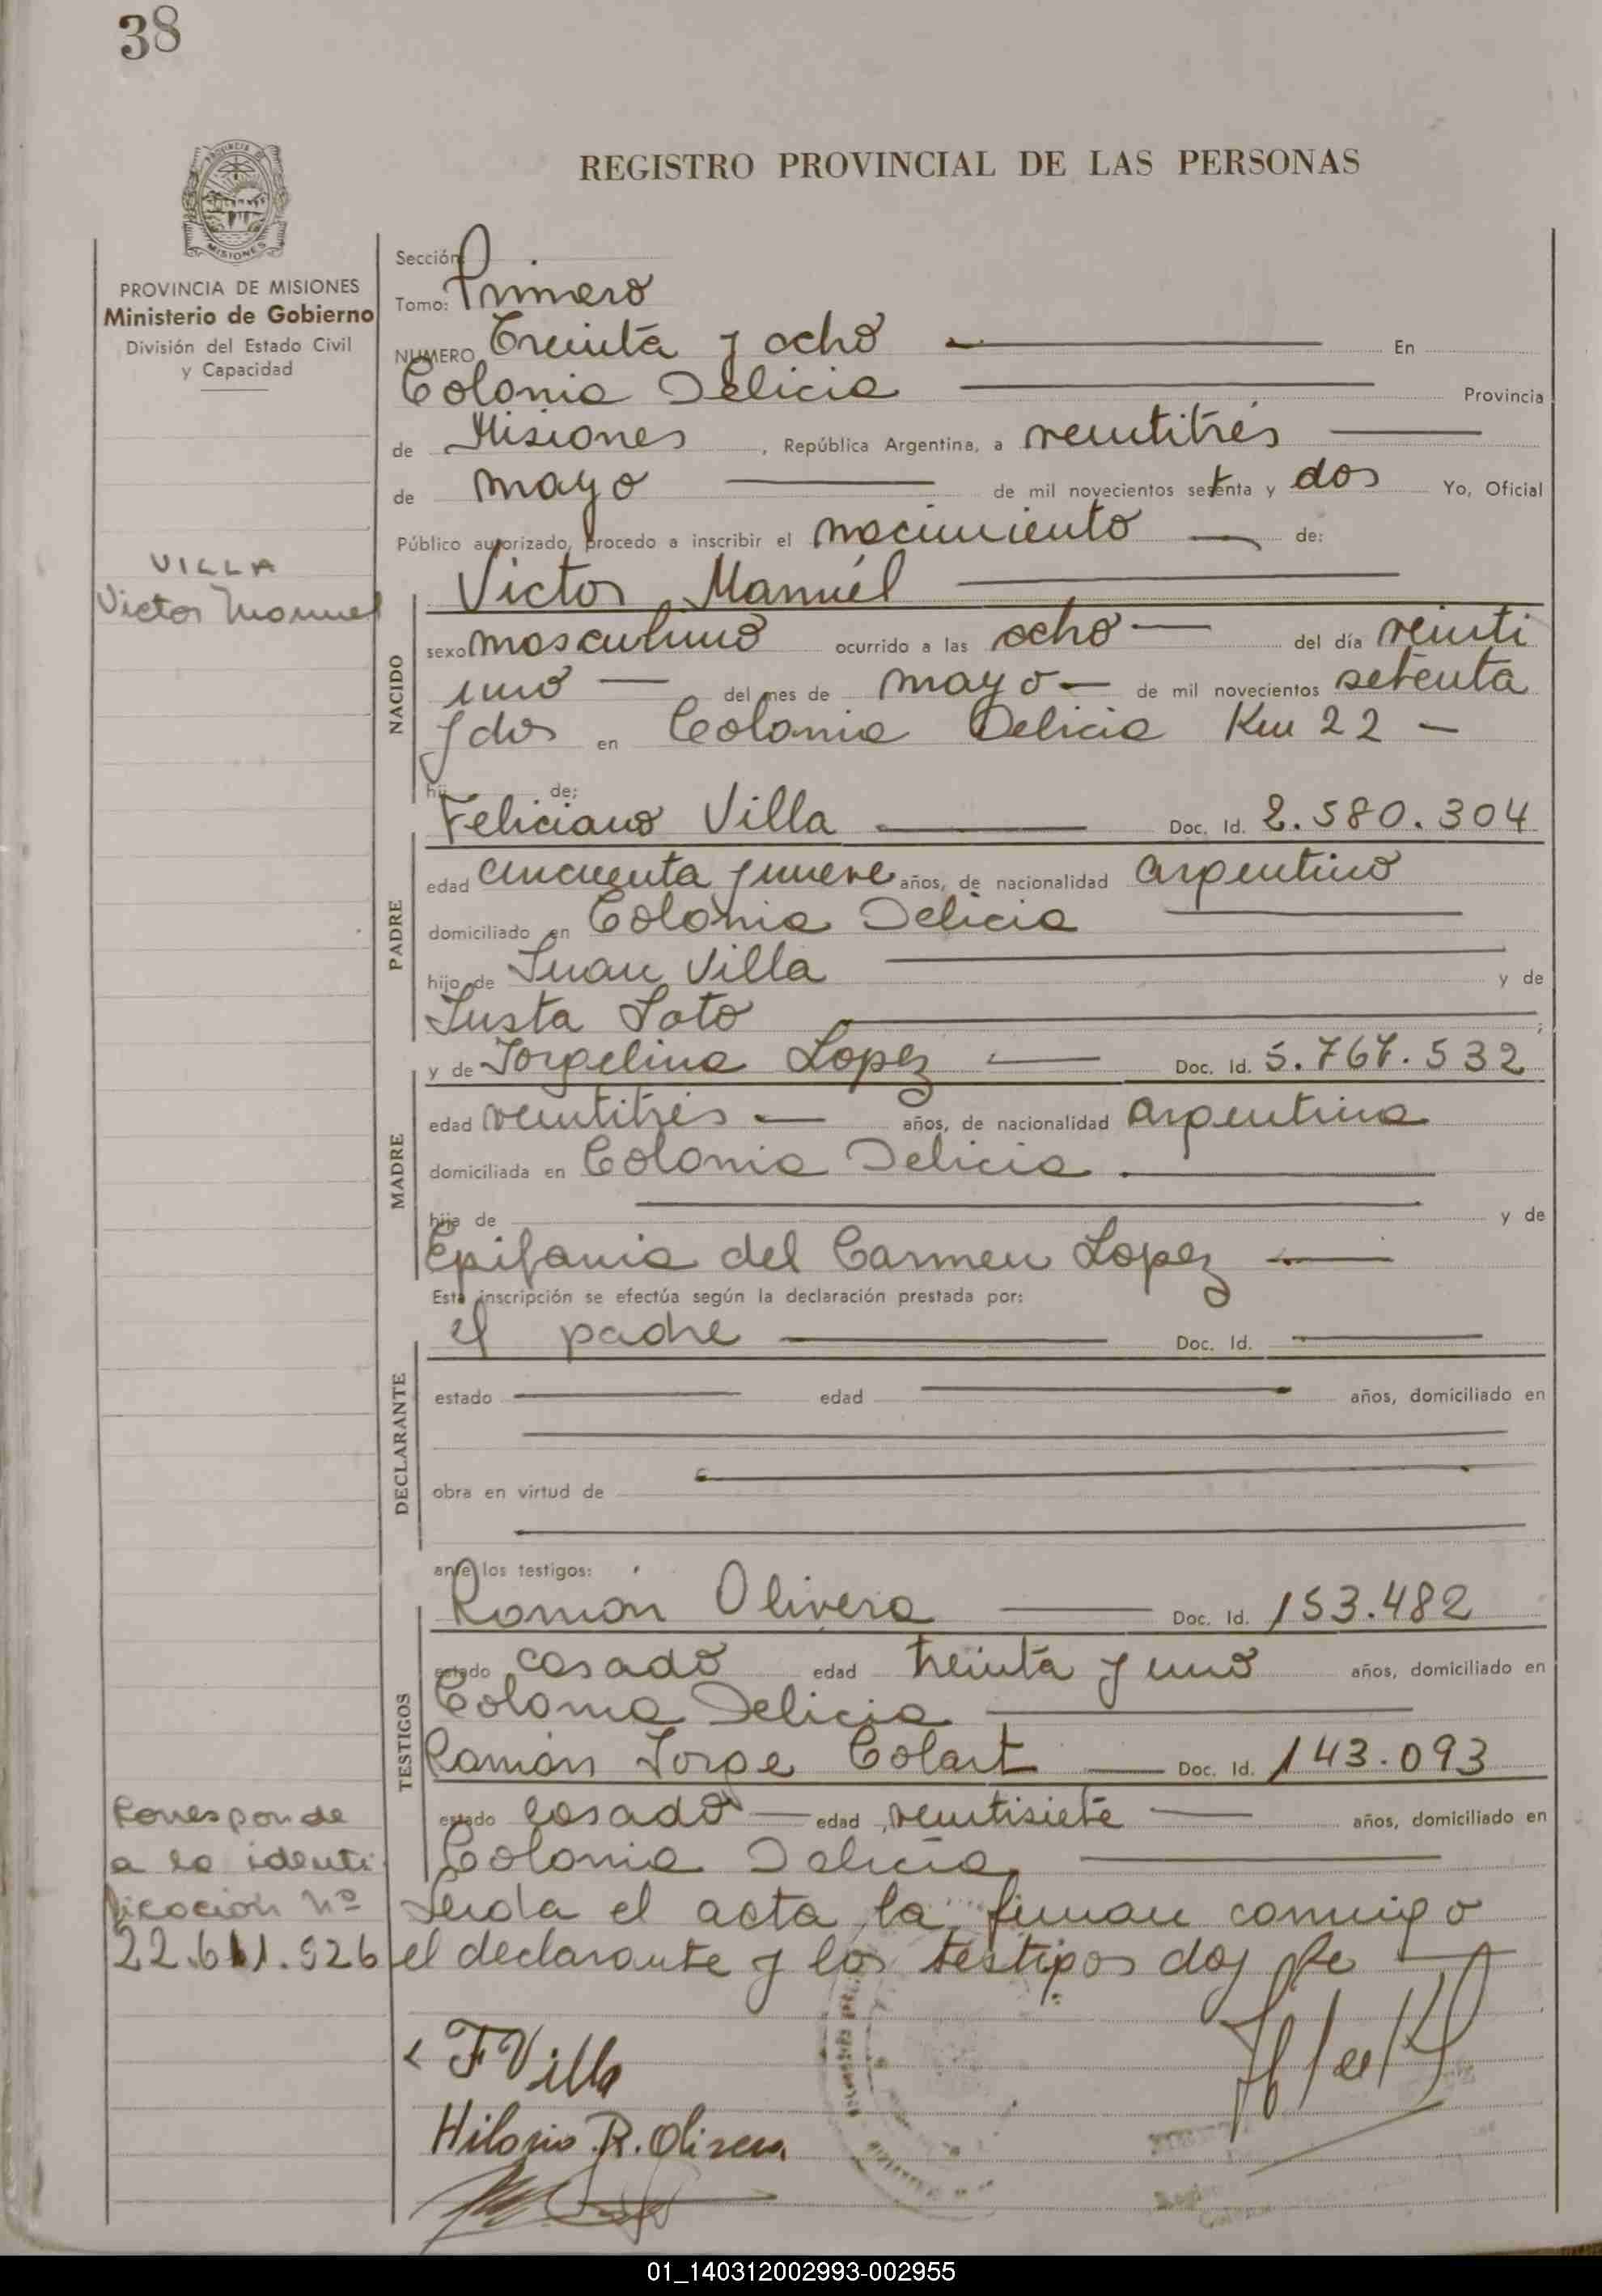 38
REGISTRO PROVINCIAL DE LAS PERSONAS
PROVINCIA DE
MISIONES
PROVINCIA DE MISIONES
Ministerio de Gobierno
División del Estado Civil
y Capacidad
VILLA
Victor Manuel
Sección
Tomo: Primero
NUMERO Treinta y ocho En
Colonia Delicia Provincia
de Misiones, República Argentina, a veintitrés
de mayo de mil novecientos setenta y dos Yo, Oficial
Público autorizado, procedo a inscribir el nacimiento de:
Victor Manuel
NACIDO
sexo masculino ocurrido a las ocho del día veinti
uno del mes de mayo de mil novecientos setenta
y dos en Colonia Delicia Km 22
hij de;
Feliciano Villa Doc. Id. 2.580.304
PADRE
edad cincuenta y nueve años, de nacionalidad argentino
domiciliado en Colonia Delicia
hijo de Juan Villa y de
Justa Soto
y de Jorgelina Lopez Doc. Id.
MADRE
edad veintitrés años, de nacionalidad argentina
domiciliada en Colonia Delicia
hija de y de
Epifania del Carmen Lopez
Esta inscripción se efectúa según la declaración prestada por:
el padre Doc. Id.
DECLARANTE
estado edad años, domiciliado en
obra en virtud de
ante los testigos:
Román Olivera Doc. Id. 153.482
TESTIGOS
estado casado edad treinta y uno años, domiciliado en
Colonia Delicia
Ramón Jorge Colart Doc. Id. 143.093
estado casado edad veintisiete años, domiciliado en
Colonia Delicia
Leida el acta la firman conmigo
el declarante y los testigos doy fe
Corresponde
a la identi
ficacion Nº
22.611.926
F Villa
Hilario R. Olivera
01_140312002993-002955